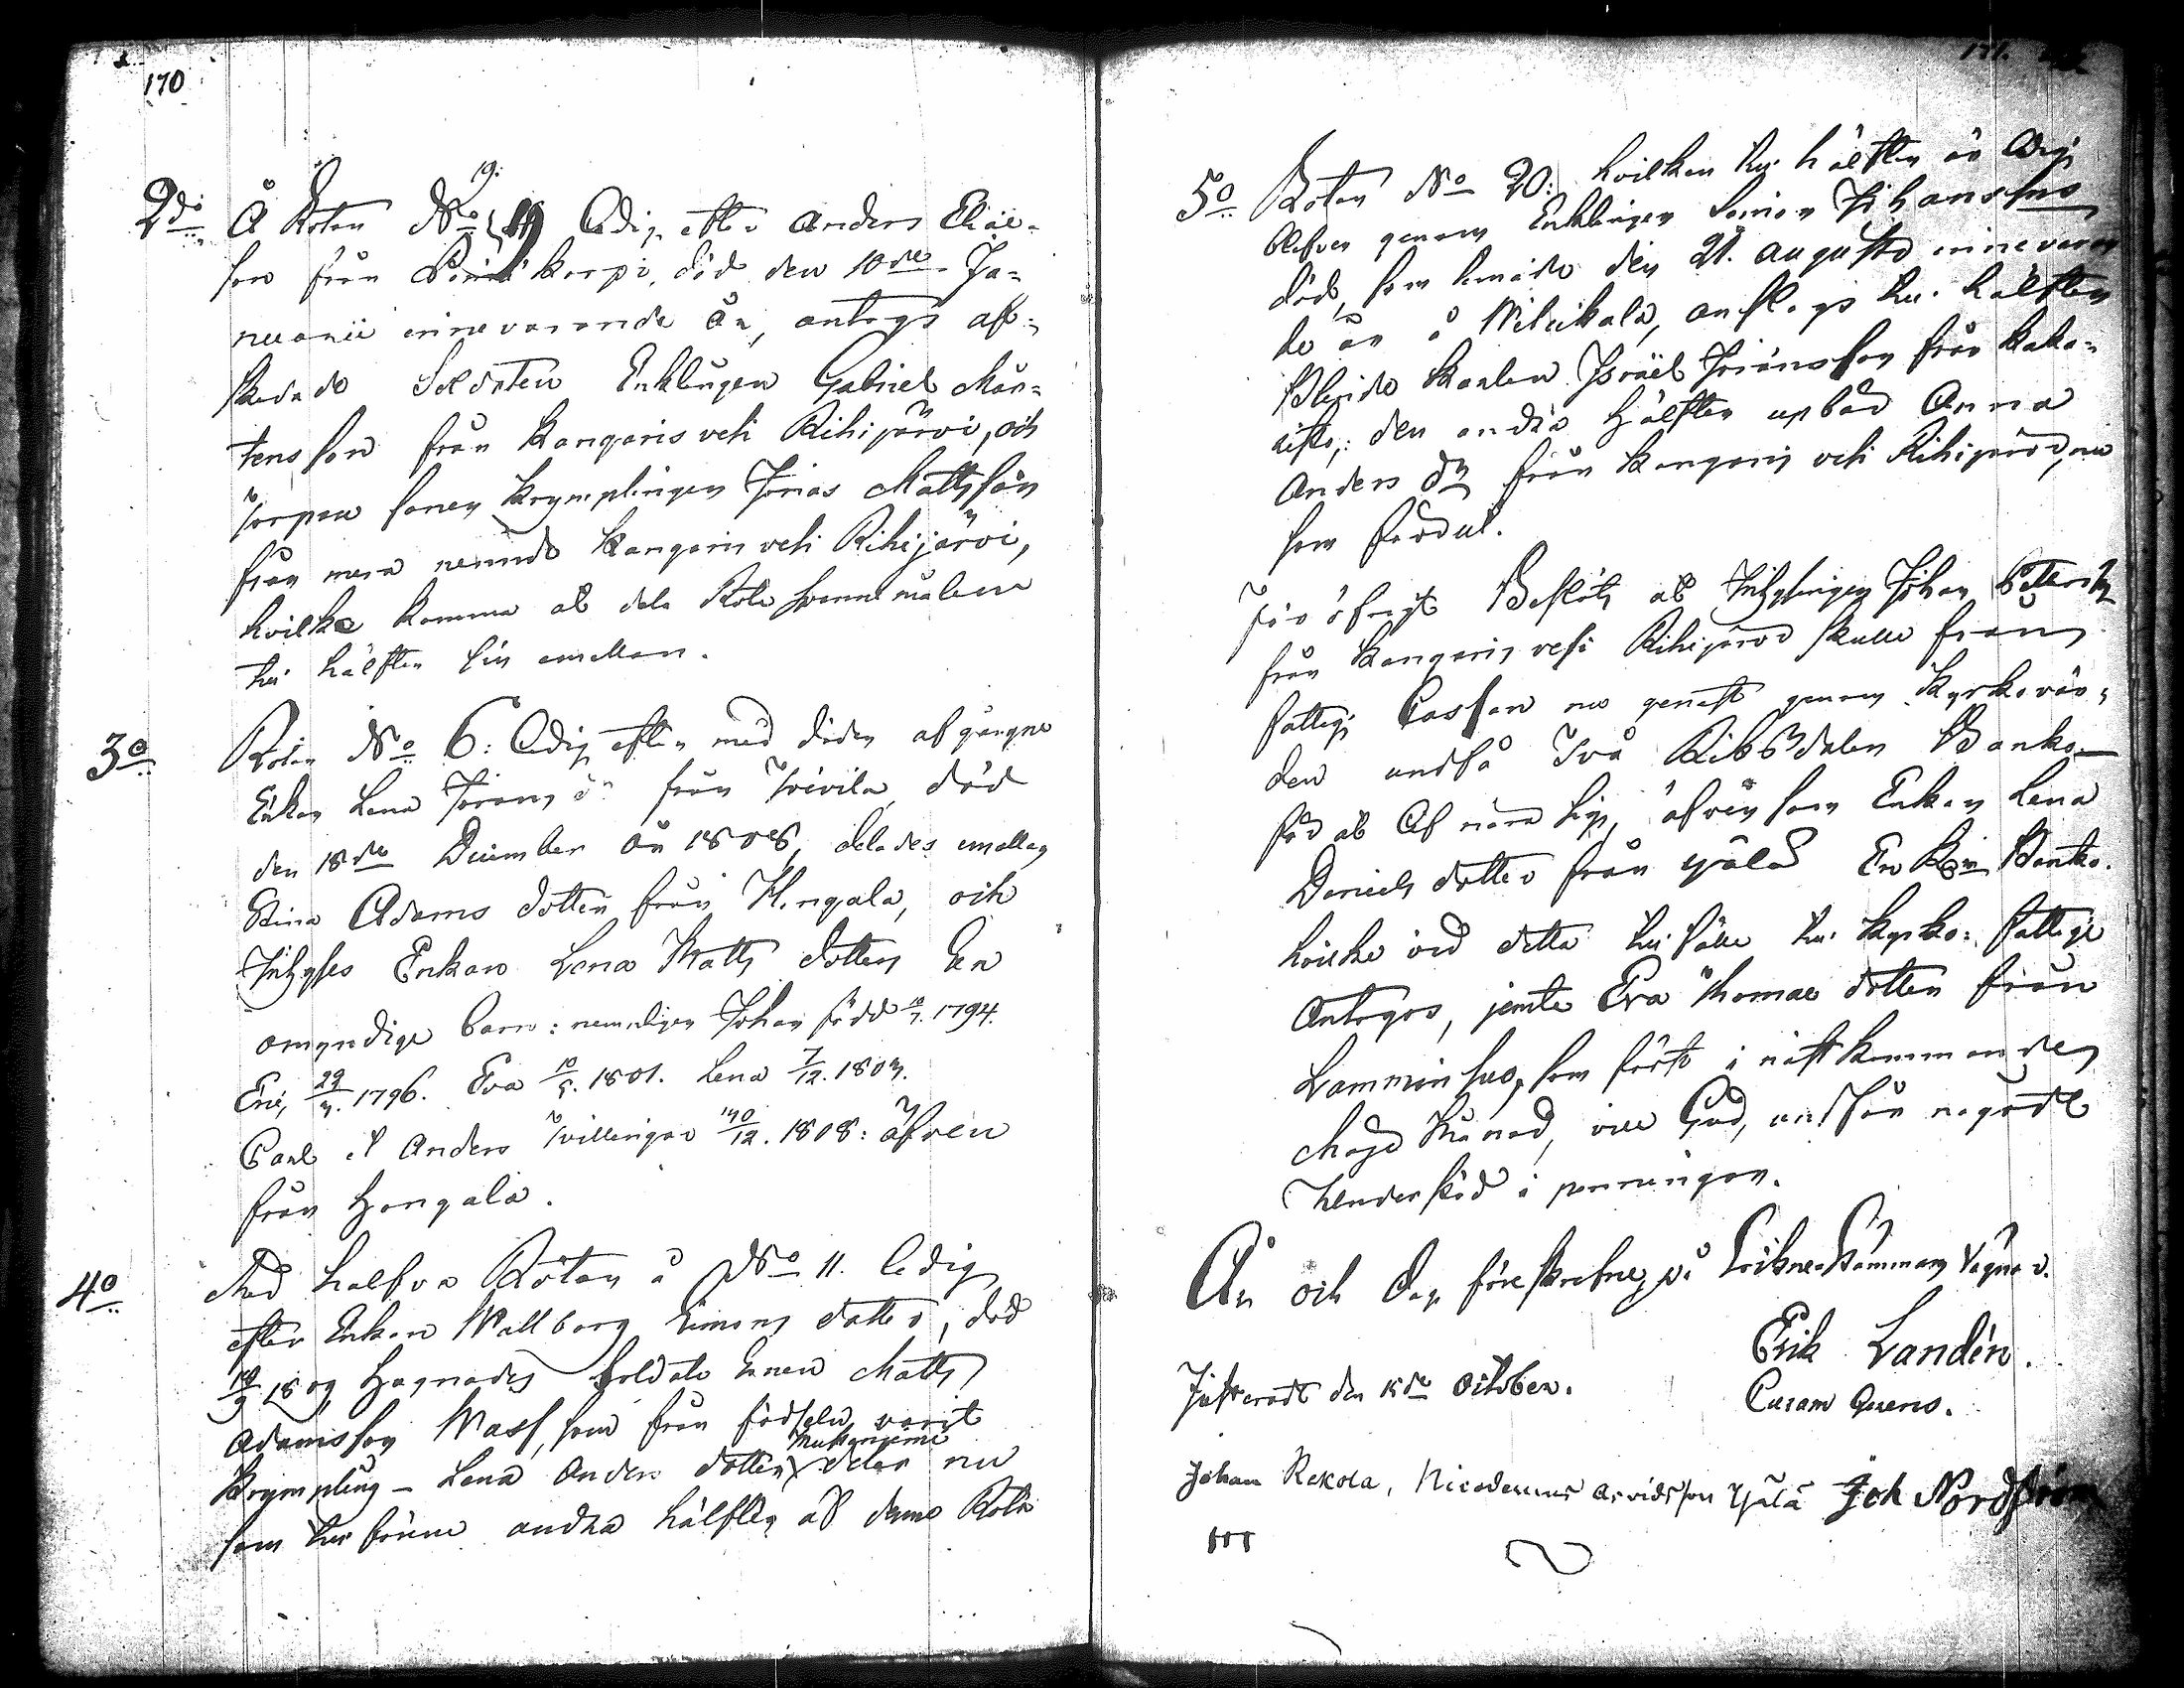 170
2do Å Rotan No 19: Ledig efter Anders Eliæ-
son från korpi, död den 10de Ja-
nuarii innevarande År, antogs af-
skedade Soldaten Enklingen Gabriel Mår-
tensson från Kangarisvesi Rihijärvi, och
Torpare sonen Krymplingen Jonas Mattsson
från mera nemnde Kangarisvesi Rihijärvi,
hvilka komma at dela Rote
til hälften sin emellan.
3o Rotan No 6: Ledig efter med döden afgångne
Enkan Lena Jörans dr från Toivila, död
den 18de December År 1808, delades emellan
Stina Adams dotter från Hongala, och
Inhyses Enkan Lena Matts dotters Een
omyndige barn: nemligen Johan född 1794.
Eric, 29/ 1796. Eva 10/ 1801. Lena 7/12. 180
Carl & Anders Tvillingar /12. 1808: äfven
från Hongala.
4o Med halfva Rotan å No 11. ledig
efter Enkan Wallborg Simons dotter, död
1809 Hugnades Soldate Sonen Matts
Adamsson Wass, som från födseln varit
Krympling - Lena Anders dotter delar nu
som tilförene andra hälften af denne Rote
171.
5o Rotan No 20: hvilken til hälften är ledig
blefven genom Enklingen Simon Johanssons
död, som timade den 21. Augusti innevaran
de år å Mikkala, anslogs til hälften
Blinde Karlen Israël Jöransson från Kaka-
risto,: den andra Hälften upbär Anna
Anders dr från Kangarisvesi Rihijärvi, nu
som förut.
För öfrigt Beslöts at Inhyslingen Johan
från Kangarisvesi Rihijärvi skulle från
fattig Cassan nu genast genom Kyrkovär-
den undfå Två RiksDaler Banko
för at af nära sig, äfven som Enkan Lena
Daniels dotter från Yjälä En R: Banko.
hvilke vid detta tilfälle til Kyrko-fattige
antogos, jemte Eva Thomæ dotter från
som först i nästkommande
Maji Månad, vill Gud, undfår någodt
understöd i penningar.
År och Dag föreskrefne, på Sockne-Stämmans Vägnar.
Erik Landén.
Curam Gerens.
Justeradt den 15de October.
Johan Rekola, Nicodemus Arvidsson Yjälä Joh Nordström